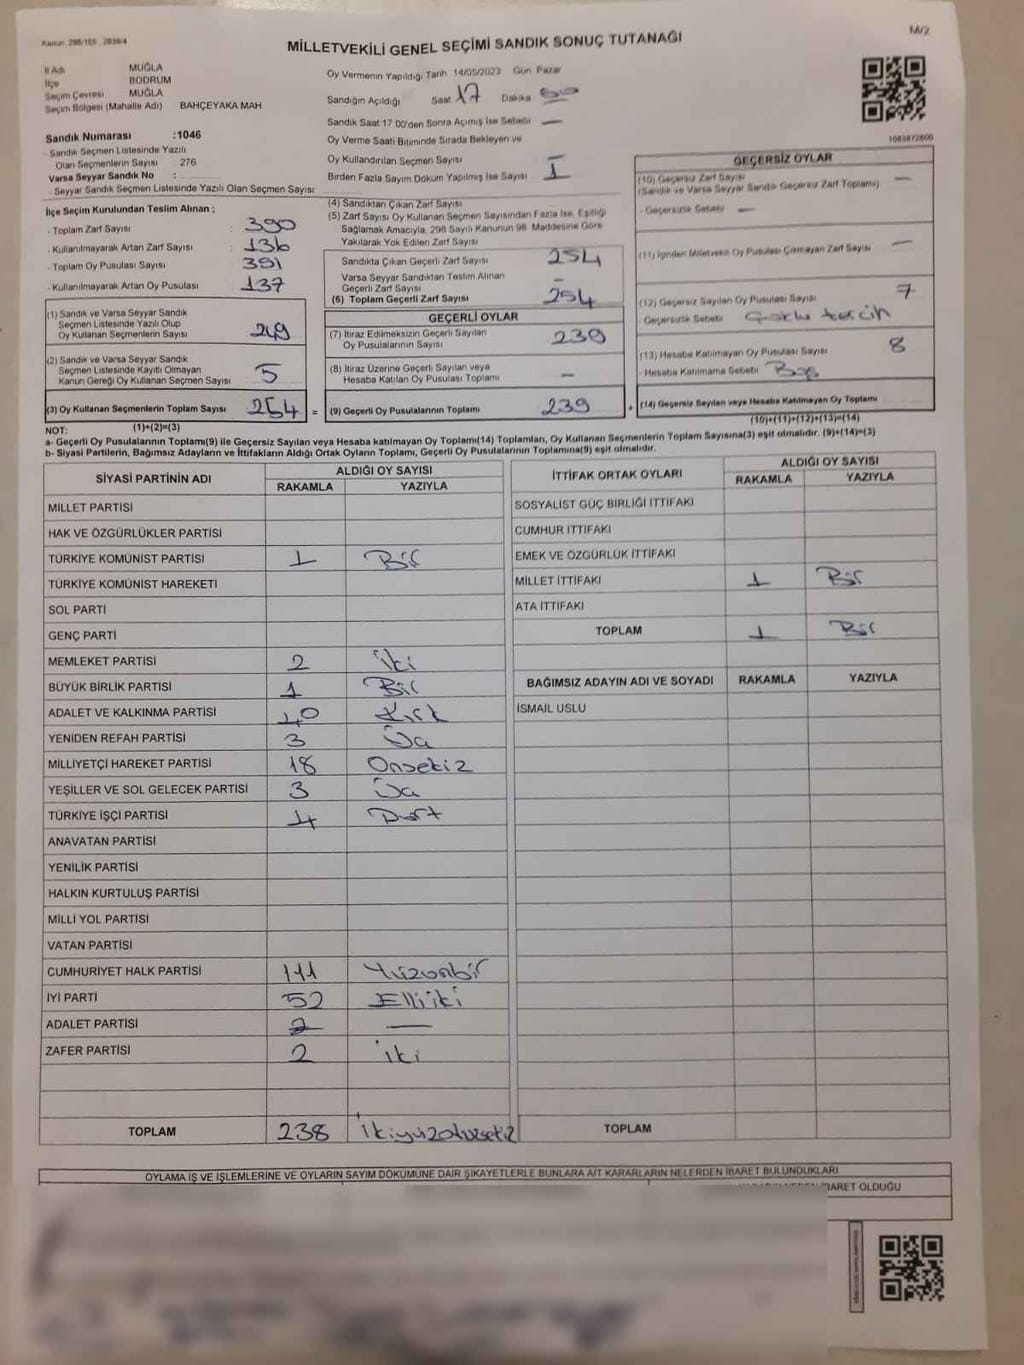 Kanun: 298/105 2839/4
M/2
MİLLETVEKİLİ GENEL SEÇİMİ SANDIK SONUÇ TUTANAĞI
İl Adı MUĞLA
İlçe BODRUM
Seçim Çevresi MUĞLA
Seçim Bölgesi (Mahalle Adı) BAHÇEYAKA MAH
Sandık Numarası :1046
- Sandık Seçmen Listesinde Yazılı
Olan Seçmenlerin Sayısı 276
Varsa Seyyar Sandık No :
- Seyyar Sandık Seçmen Listesinde Yazılı Olan Seçmen Sayısı:
Oy Vermenin Yapıldığı Tarih 14/05/2023 Gün Pazar
Sandığın Açıldığı Saat 17 Dakika
Sandık Saat 17:00'den Sonra Açımış İse Sebebi —
Oy Verme Saati Bitiminde Sırada Bekleyen ve
Oy Kullandırılan Seçmen Sayısı
Birden Fazla Sayım Döküm Yapılmış İse Sayısı I
İlçe Seçim Kurulundan Teslim Alınan ;
- Toplam Zarf Sayısı : 390
- Kullanılmayarak Artan Zarf Sayısı : 136
- Toplam Oy Pusulası Sayısı : 391
- Kullanılmayarak Artan Oy Pusulası : 137
(1) Sandık ve Varsa Seyyar Sandık
Seçmen Listesinde Yazılı Olup
Oy Kullanan Seçmenlerin Sayısı 249
(2) Sandık ve Varsa Seyyar Sandık
Seçmen Listesinde Kayıtlı Olmayan
Kanun Gereği Oy Kullanan Seçmen Sayısı 5
(3) Oy Kullanan Seçmenlerin Toplam Sayısı 254 =
(4) Sandıktan Çıkan Zarf Sayısı
(5) Zarf Sayısı Oy Kullanan Seçmen Sayısından Fazla İse, Eşitliği
Sağlamak Amacıyla, 298 Sayılı Kanunun 98. Maddesine Göre
Yakılarak Yok Edilen Zarf Sayısı
Sandıkta Çıkan Geçerli Zarf Sayısı 254
Varsa Seyyar Sandıktan Teslim Alınan
Geçerli Zarf Sayısı —
(6) Toplam Geçerli Zarf Sayısı 254
GEÇERLİ OYLAR
(7) İtiraz Edilmeksizin Geçerli Sayılan
Oy Pusulalarının Sayısı 239
(8) İtiraz Üzerine Geçerli Sayılan veya
Hesaba Katılan Oy Pusulası Toplamı —
(9) Geçerli Oy Pusulalarının Toplamı 239 +
GEÇERSİZ OYLAR
(10) Geçersiz Zarf Sayısı —
(Sandık ve Varsa Seyyar Sandık Geçersiz Zarf Toplamı)
- Geçersizlik Sebebi —
(11) İçinden Milletvekili Oy Pusulası Çıkmayan Zarf Sayısı —
(12) Geçersiz Sayılan Oy Pusulası Sayısı 7
- Geçersizlik Sebebi Çoklu tercih
(13) Hesaba Katılmayan Oy Pusulası Sayısı 8
- Hesaba Katılmama Sebebi Boş
(14) Geçersiz Sayılan veya Hesaba Katılmayan Oy Toplamı
NOT: (1)+(2)=(3)
(10)+(11)+(12)+(13)=(14)
a- Geçerli Oy Pusulalarının Toplamı(9) ile Geçersiz Sayılan veya Hesaba katılmayan Oy Toplamı(14) Toplamları, Oy Kullanan Seçmenlerin Toplam Sayısına(3) eşit olmalıdır. (9)+(14)=(3)
b- Siyasi Partilerin, Bağımsız Adayların ve İttifakların Aldığı Ortak Oyların Toplamı, Geçerli Oy Pusulalarının Toplamına(9) eşit olmalıdır.
SİYASİ PARTİNİN ADI ALDIĞI OY SAYISI
RAKAMLA YAZIYLA
MİLLET PARTİSİ
HAK VE ÖZGÜRLÜKLER PARTİSİ
TÜRKİYE KOMÜNİST PARTİSİ 1 Bir
TÜRKİYE KOMÜNİST HAREKETİ
SOL PARTİ
GENÇ PARTİ
MEMLEKET PARTİSİ 2 İki
BÜYÜK BİRLİK PARTİSİ 1 Bir
ADALET VE KALKINMA PARTİSİ 40 Kırk
YENİDEN REFAH PARTİSİ 3 Üç
MİLLİYETÇİ HAREKET PARTİSİ 18 Onsekiz
YEŞİLLER VE SOL GELECEK PARTİSİ 3 Üç
TÜRKİYE İŞÇİ PARTİSİ 4 Dört
ANAVATAN PARTİSİ
YENİLİK PARTİSİ
HALKIN KURTULUŞ PARTİSİ
MİLLİ YOL PARTİSİ
VATAN PARTİSİ
CUMHURİYET HALK PARTİSİ 111 Yüzonbir
İYİ PARTİ 52 Elliiki
ADALET PARTİSİ 2 —
ZAFER PARTİSİ 2 iki
TOPLAM 238 ikiyüzotuzsekiz
İTTİFAK ORTAK OYLARI ALDIĞI OY SAYISI
RAKAMLA YAZIYLA
SOSYALİST GÜÇ BİRLİĞİ İTTİFAKI
CUMHUR İTTİFAKI
EMEK VE ÖZGÜRLÜK İTTİFAKI
MİLLET İTTİFAKI 1 Bir
ATA İTTİFAKI
TOPLAM 1 Bir
BAĞIMSIZ ADAYIN ADI VE SOYADI RAKAMLA YAZIYLA
İSMAİL USLU
TOPLAM
OYLAMA İŞ VE İŞLEMLERİNE VE OYLARIN SAYIM DÖKÜMÜNE DAİR ŞİKAYETLERLE BUNLARA AİT KARARLARIN NELERDEN İBARET BULUNDUKLARI
İBARET OLDUĞU